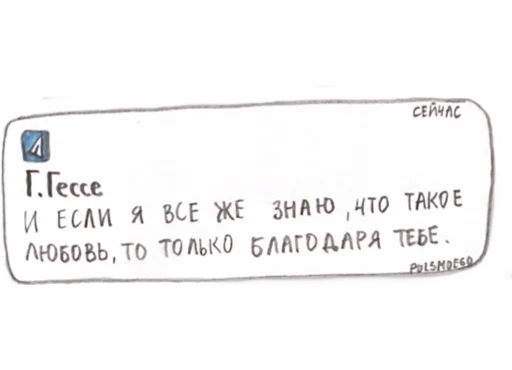 СЕЙЧАС
Г.Гессе
И ЕСЛИ Я ВСЕ ЖЕ ЗНАЮ ,ЧТО ТАКОЕ
ЛЮБОВЬ, ТО ТОЛЬКО БЛАГОДАРЯ ТЕБЕ.
PULSMOEGO